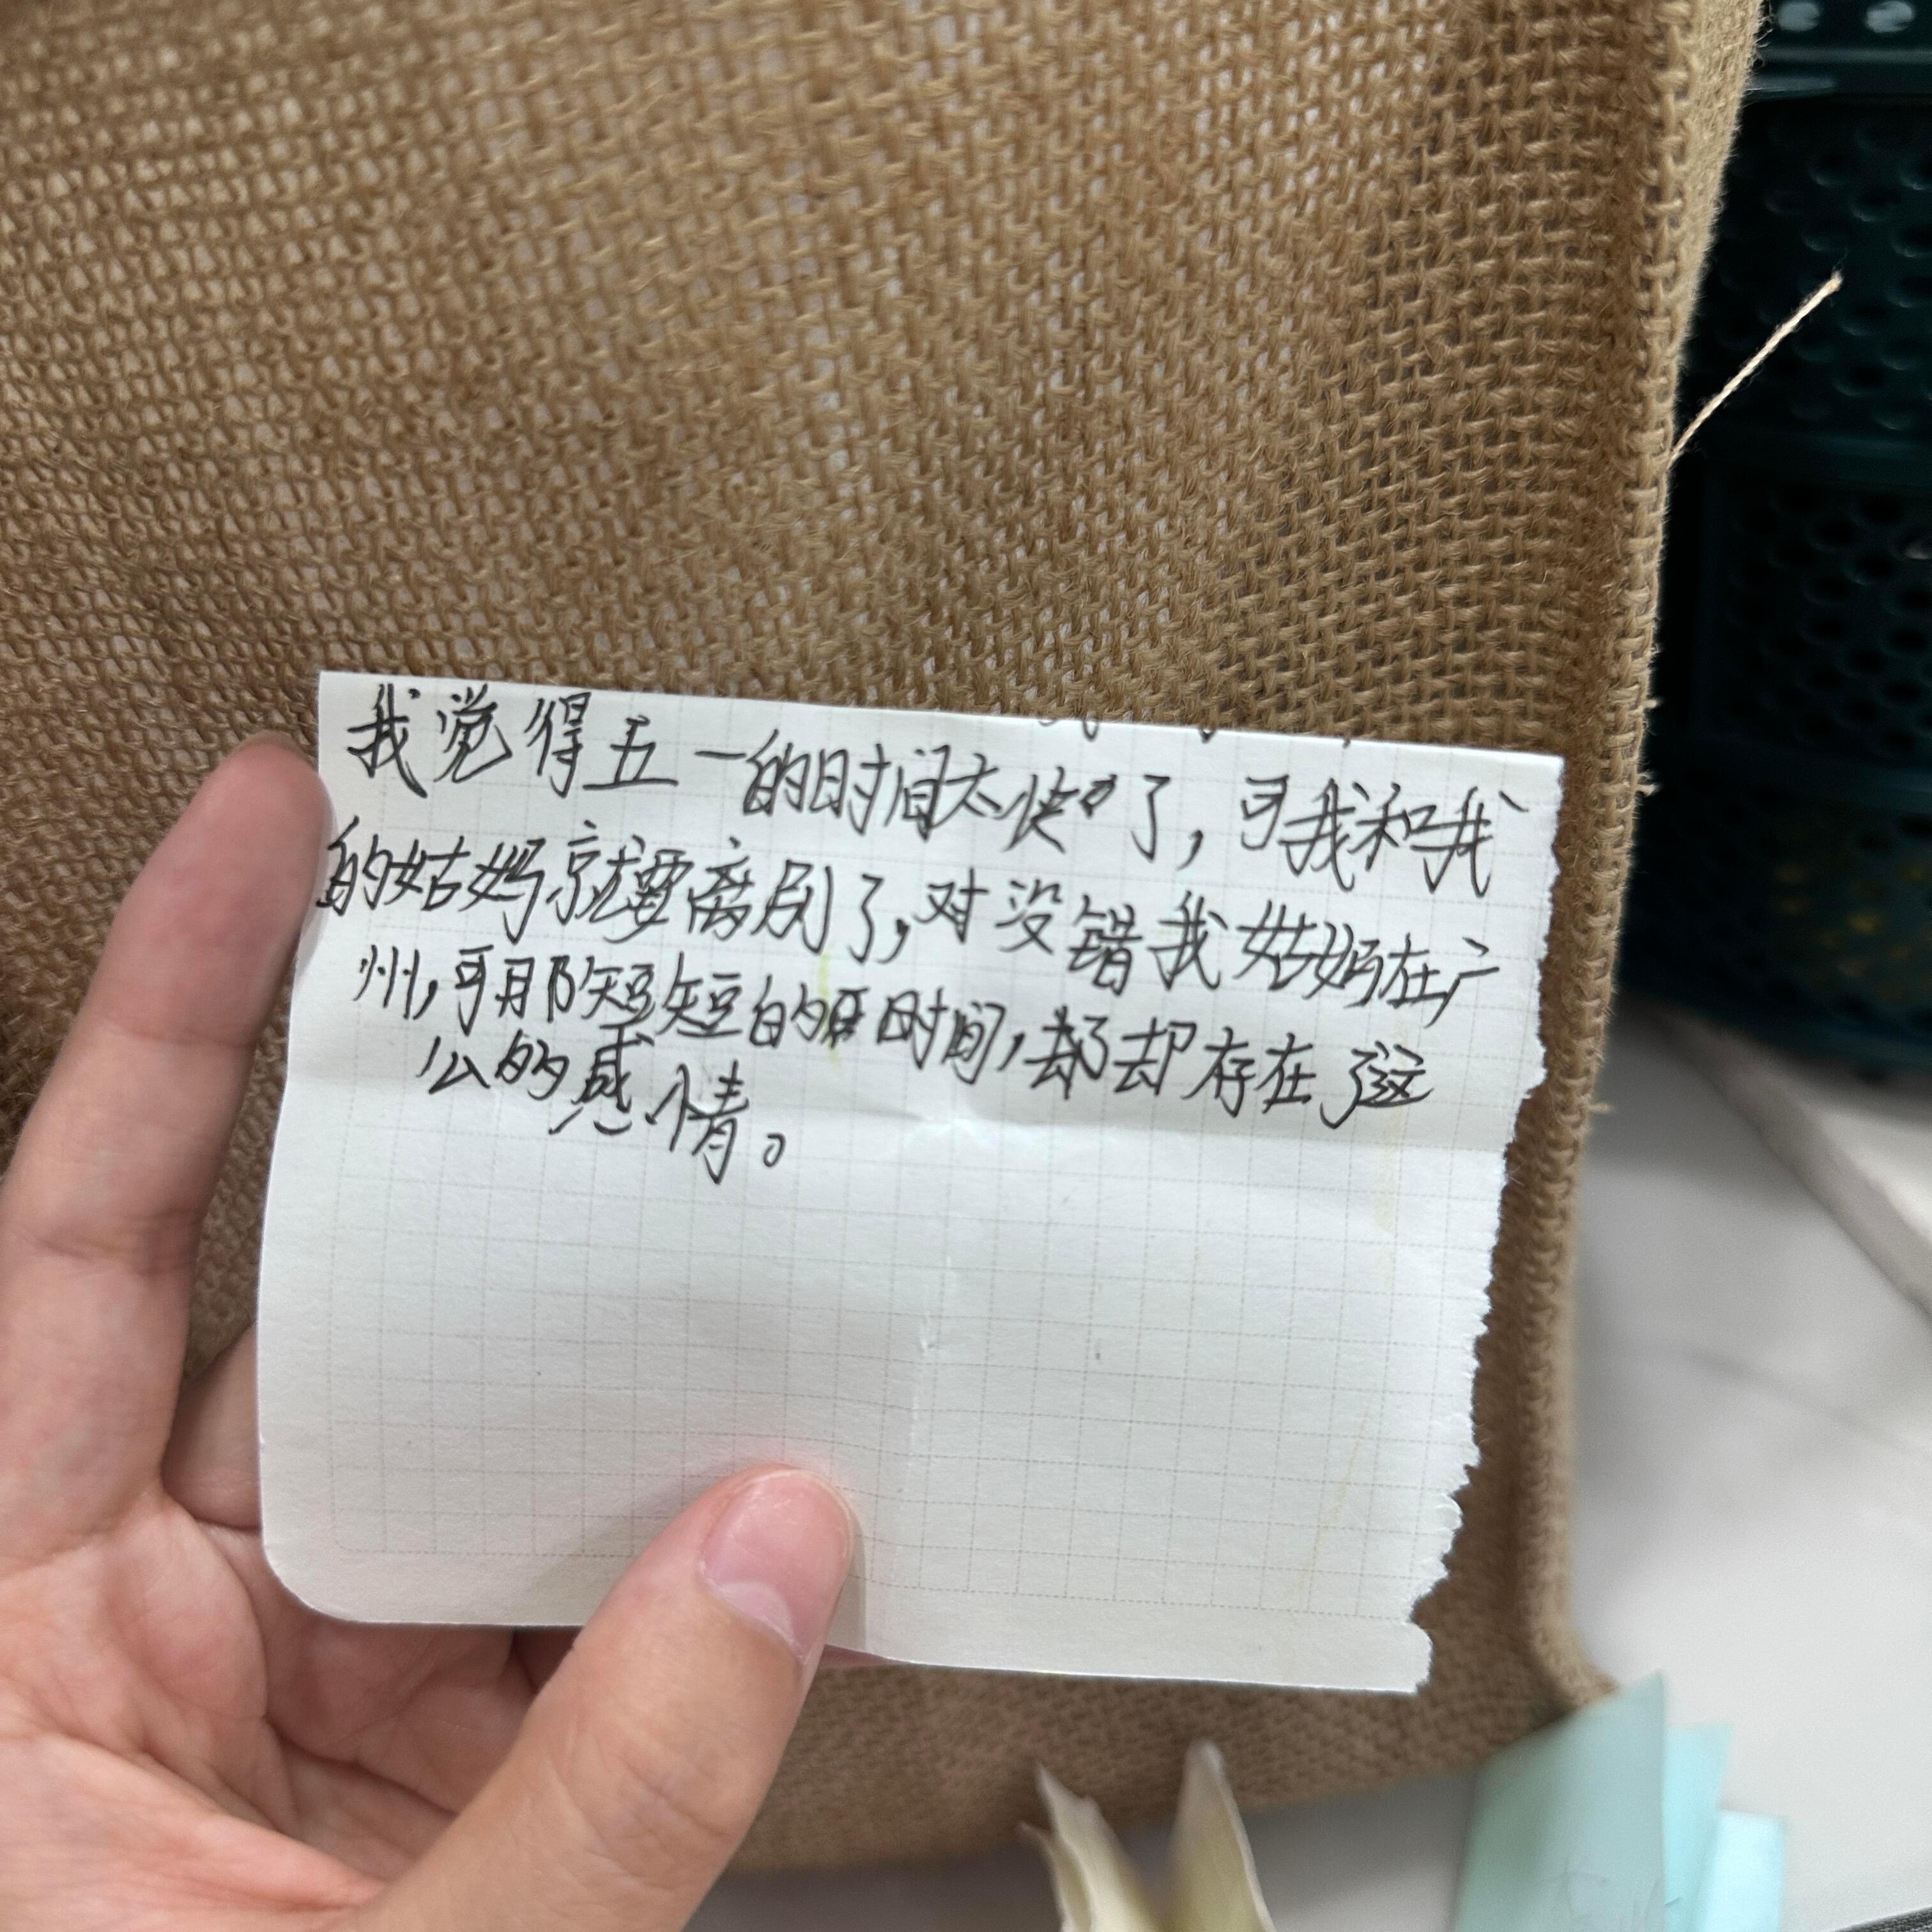 我觉得五一的时间太快了，可我和我
的姑妈就要离别了，对没错我姑妈在广
州，可那短短的时间，却却存在了这
么的感情。